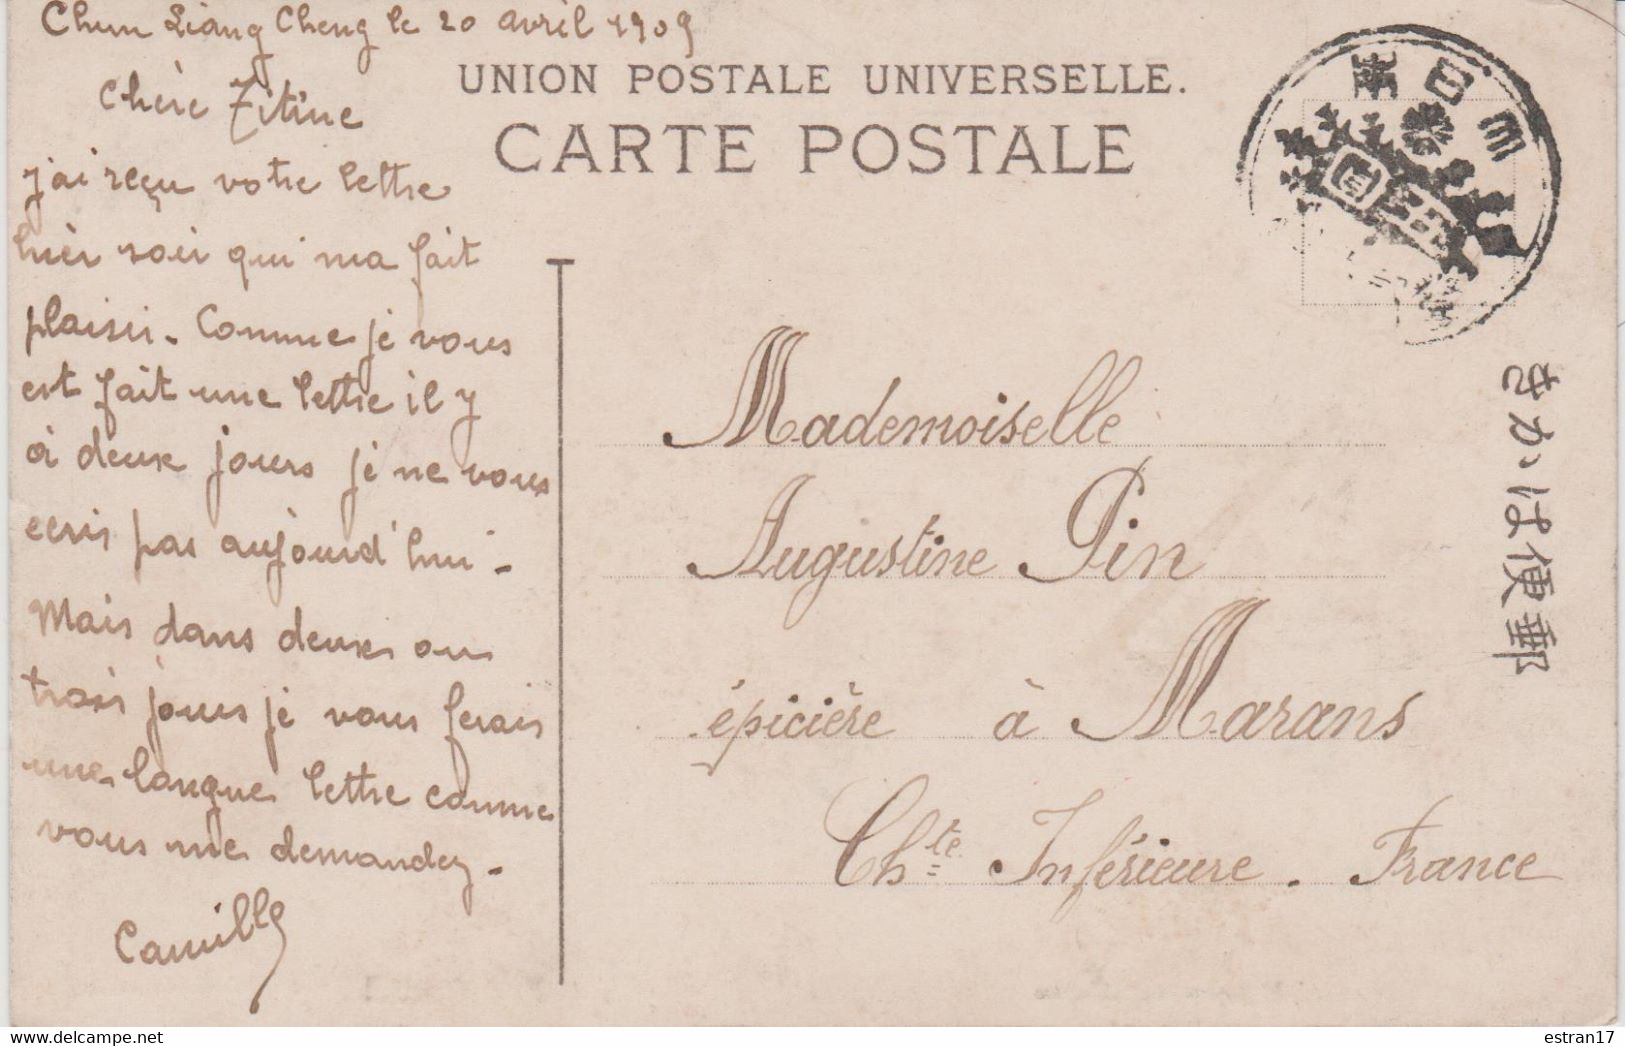 Chun Liang Cheng le 20 avril 1909
Chère Titine
j'ai reçu votre lettre
hier soir qui ma fait
plaisir. Comme je vous
est fait une lettre il y
à deux jours je ne vous
ecris pas aujourd'hui.
Mais dans deux ou
trois jours je vous ferais
une longue lettre comme
vous me demandez.
Camille
UNION POSTALE UNIVERSELLE.
CARTE POSTALE
Mademoiselle
Augustine Pin
épicière à Marans
Chte Inférieure. France
きかは便郵
estran17